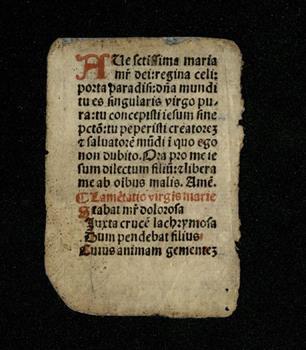 AUe sctissima maria
mr̄ dei: regina celi:
porta paradisi: dn̄a mundi
tu es singularis virgo pu⸗
ra: tu concepisti iesum sine
pctō: tu peperisti creatoreꝫ
⁊ saluatorē mūdi ī quo ego
non dubito. Ora pro me ie
sum dilectum filiū: ⁊ libera
me ab oībus malis. Amē.
¶ Lamētatio virgīs marie
Stabat mr̄ dolorosa
Juxta crucē lachrymosa
Dum pendebat filius
Cuius animam gementeꝫ